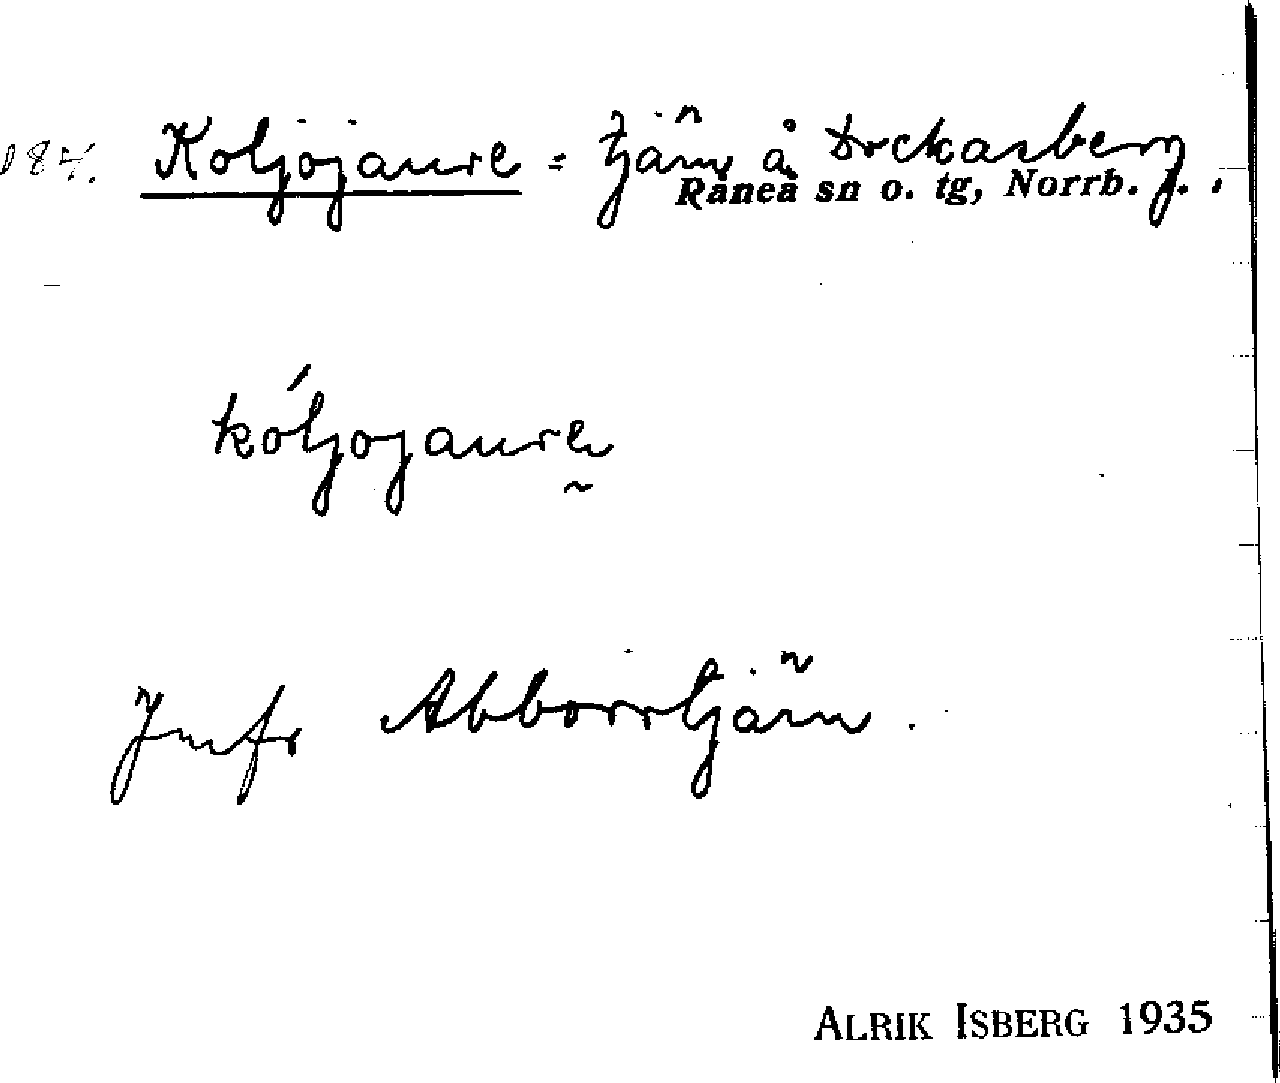 Koljojaure = tjärn å Dockasberg
Råneå sn o. tg, Norrb. j.
kóljojaure
Jmfr Abborrtjärn.
ALRIK ISBERG 1935